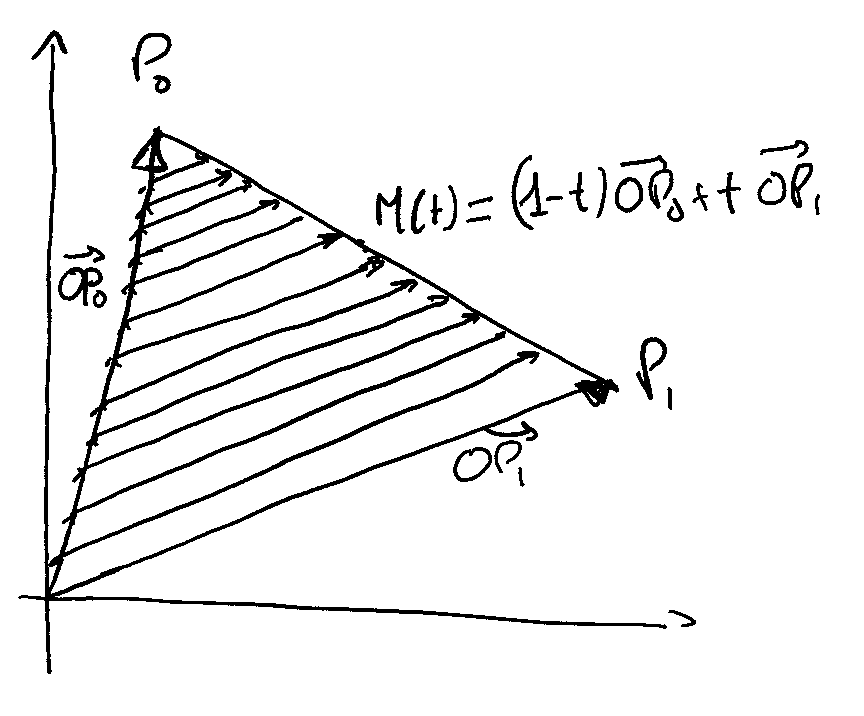 P₀
M(t) = (1-t) OP₀ + t OP₁
OP₀
P₁
OP₁